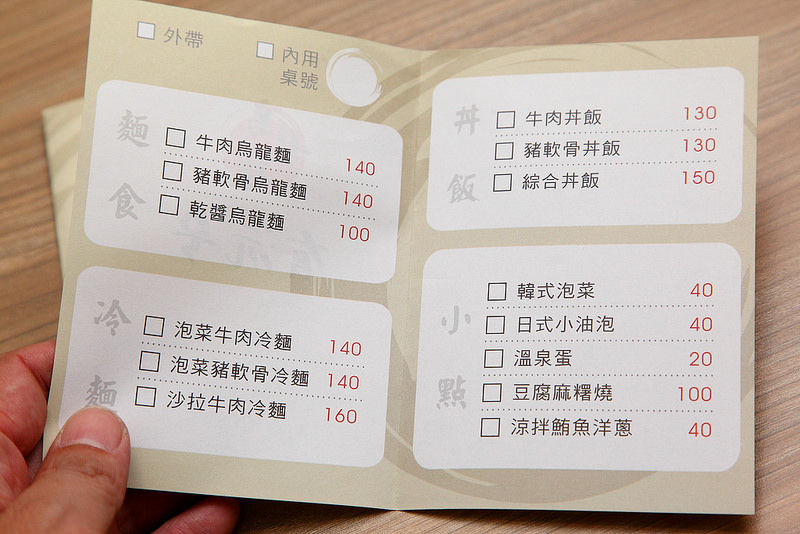 外帶
內用
桌號
麵食
牛肉烏龍麵 140
豬軟骨烏龍麵 140
乾醬烏龍麵 100
冷麵
泡菜牛肉冷麵 140
泡菜豬軟骨冷麵 140
沙拉牛肉冷麵 160
丼飯
牛肉丼飯 130
豬軟骨丼飯 130
綜合丼飯 150
小點
韓式泡菜 40
日式小油泡 40
溫泉蛋 20
豆腐麻糬燒 100
涼拌鮪魚洋蔥 40